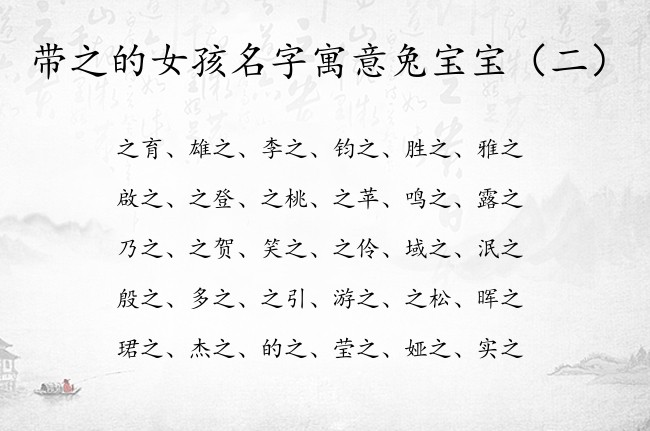 带之的女孩名字寓意兔宝宝（二）
之育、雄之、李之、钧之、胜之、雅之
啟之、之登、之桃、之苹、鸣之、露之
乃之、之贺、笑之、之伶、域之、泯之
殷之、多之、之引、游之、之松、晖之
珺之、杰之、的之、莹之、娅之、实之